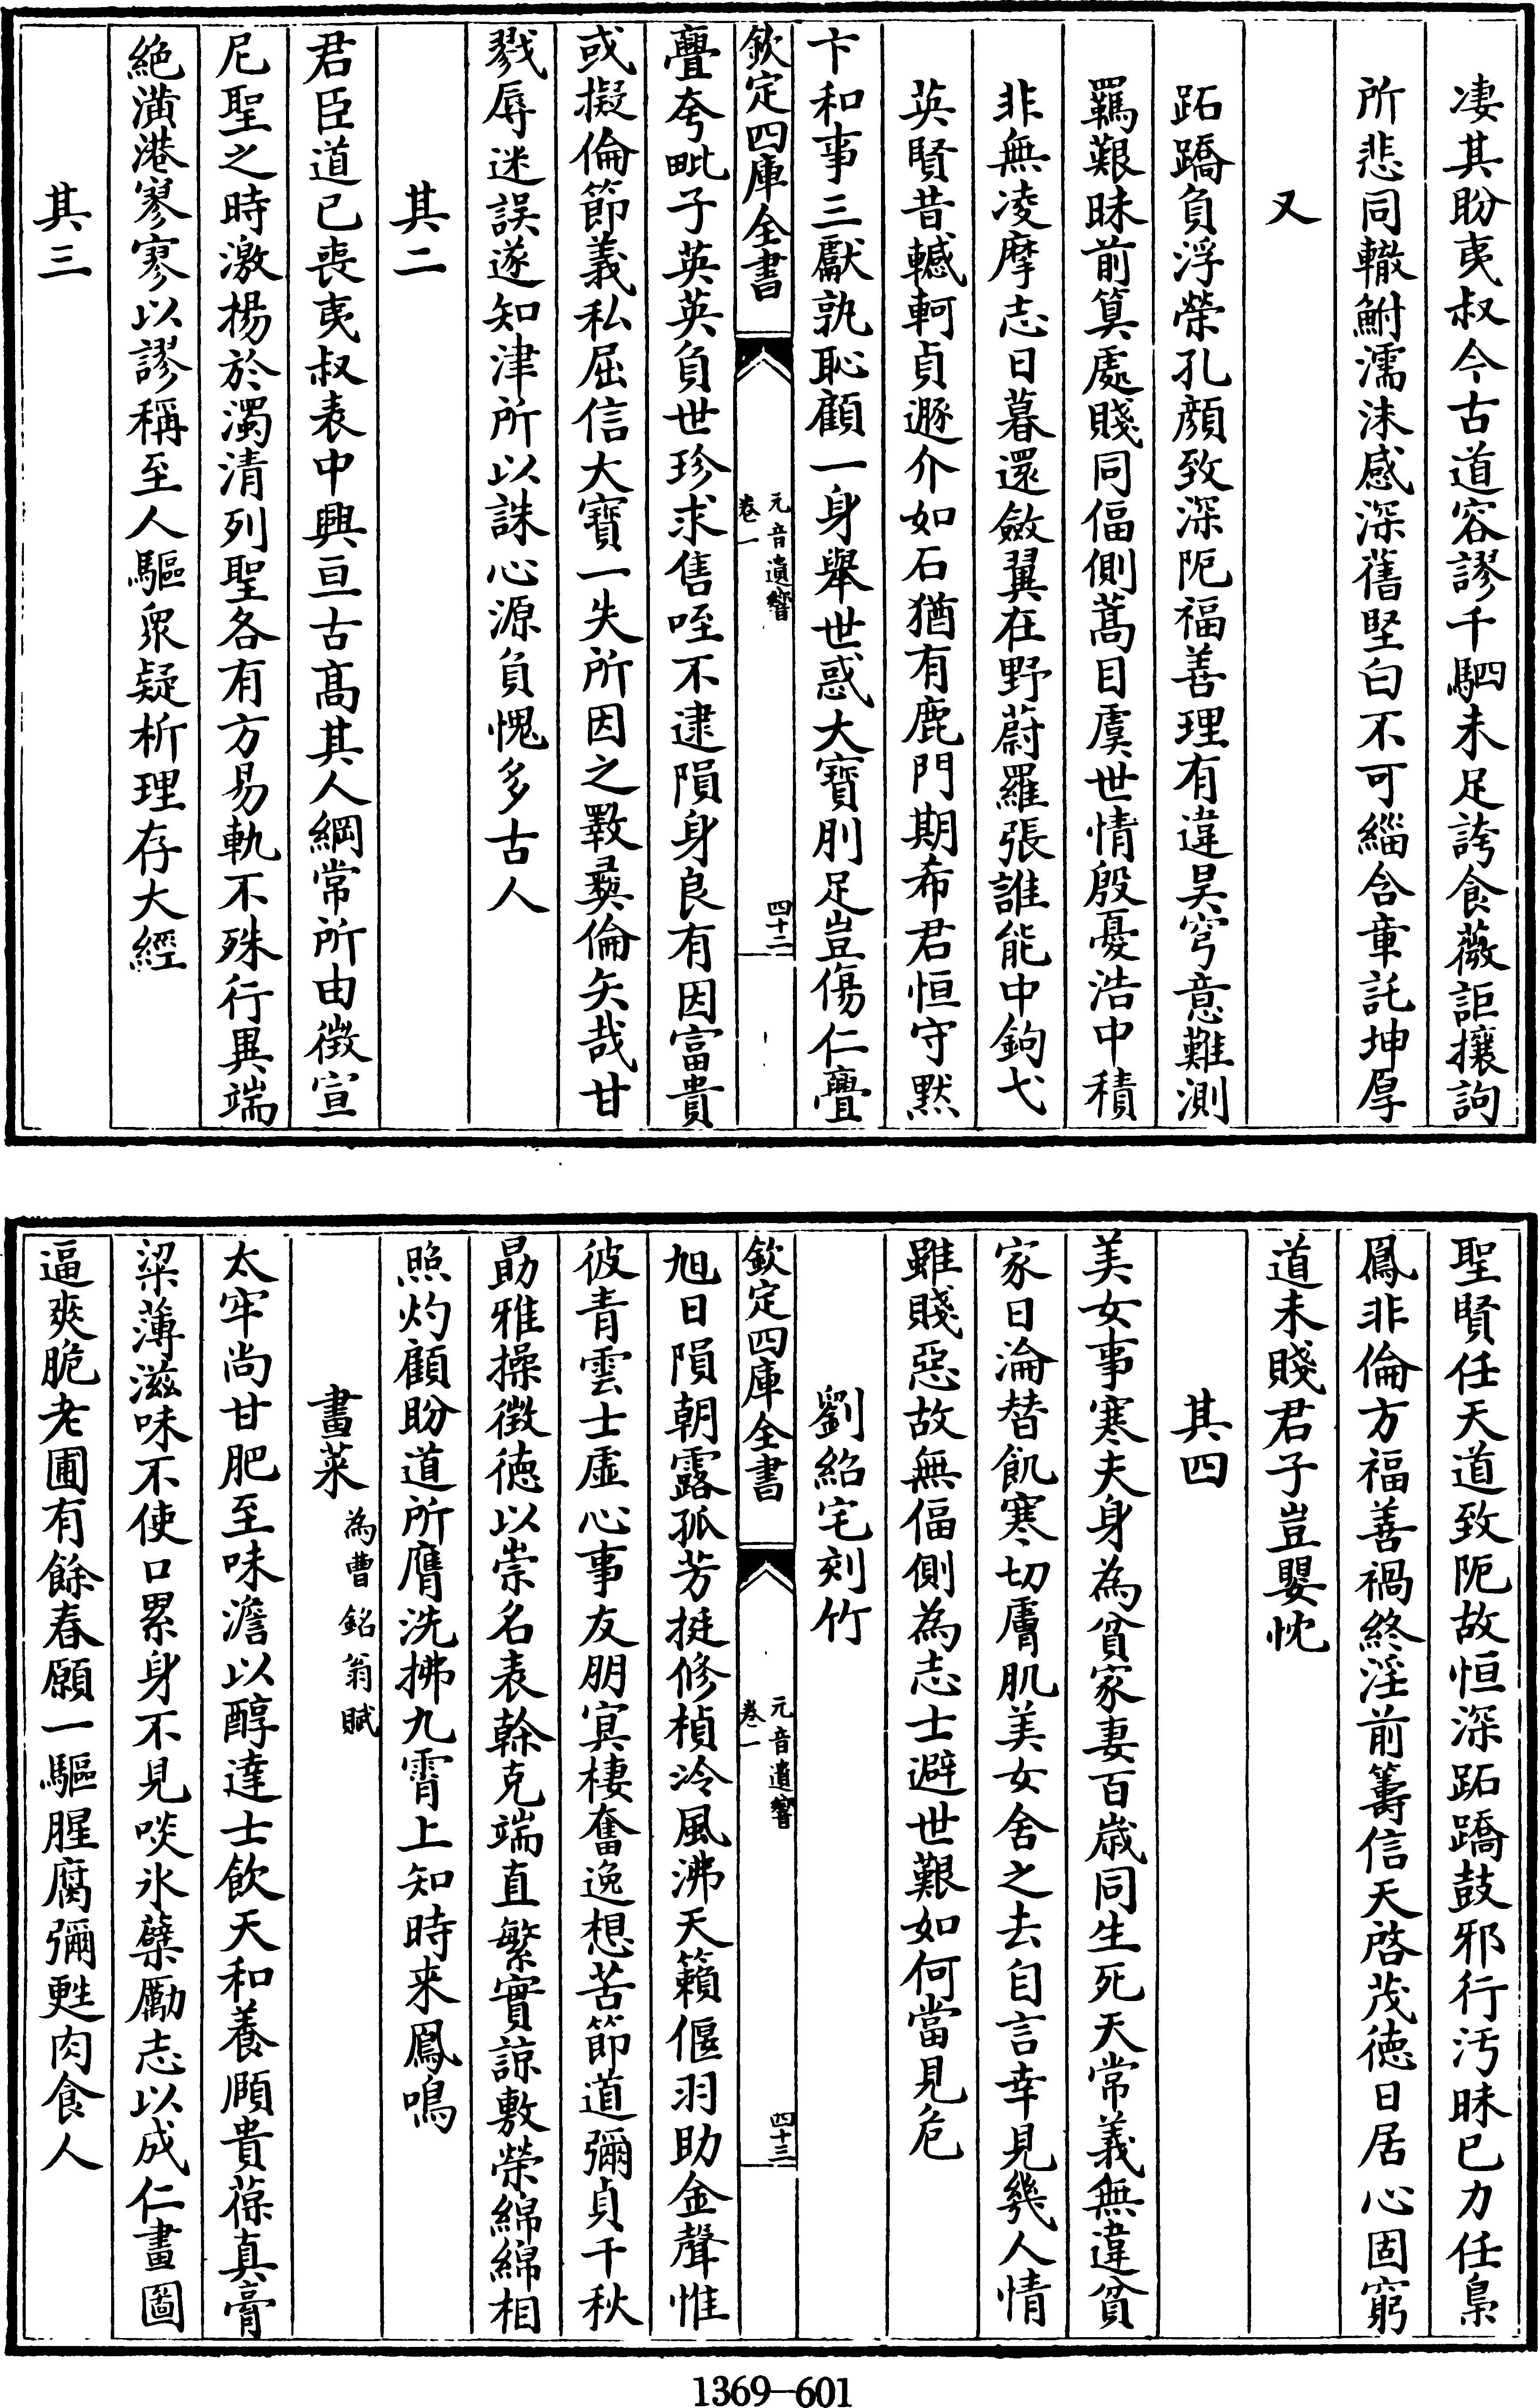 凄其盼夷叔今古道容謬千駟未足誇食薇詎攘訽
所悲同轍鮒濡沫感深舊堅白不可緇含章託坤厚
又
跖蹻負浮榮孔顔致深阨福善理有違昊穹意難測
羈艱昧前算處賤同偪側蒿目虞世情殷憂浩中積
非無凌摩志日暮還斂翼在野蔚羅張誰能中鉤弋
英賢昔轗軻貞遯介如石猶有鹿門期希君恒守默
卞和事三獻孰恥顧一身舉世惑大寶刖足豈傷仁亹
欽定四庫全書
元音遺響
卷一
四十二
亹夸毗子英英負世珍求售咥不逮隕身良有因富貴
或擬倫節義私屈信大寶一失所因之斁彝倫矢哉甘
戮辱迷誤遂知津所以誅心源負愧多古人
其二
君臣道已喪夷叔表中興亘古髙其人綱常所由徴宣
尼聖之時激揚於濁清列聖各有方易軌不殊行異端
絶潢港寥寥以謬稱至人驅衆疑析理存大經
其三
聖賢任天道致阨故恒深跖蹻鼓邪行汚昧已力任梟
鳳非倫方福善禍終淫前籌信天啓茂徳日居心固窮
道未賤君子豈嬰忱
其四
美女事寒夫身為貧家妻百嵗同生死天常義無違貧
家日淪替飢寒切膚肌美女舍之去自言幸見幾人情
雖賤惡故無偪側為志士避世艱如何當見危
劉紹宅刻竹
欽定四庫全書
元音遺響
卷一
四十三
旭日隕朝露孤芳挺修楨泠風沸天籟偃羽助金聲惟
彼青雲士虚心事友朋寘棲奮逸想苦節道彌貞千秋
勗雅操徴徳以崇名表榦克端直繁實諒敷榮綿綿相
照灼顧盼道所膺洗拂九霄上知時来鳳鳴
畫菜 為曹銘翁賦
太牢尚甘肥至味澹以醇達士飲天和養頤貴葆真膏
粱薄滋味不使口累身不見啖氷蘗勵志以成仁畫圖
逼爽脆老圃有餘春願一驅腥腐彌甦肉食人
1369—601